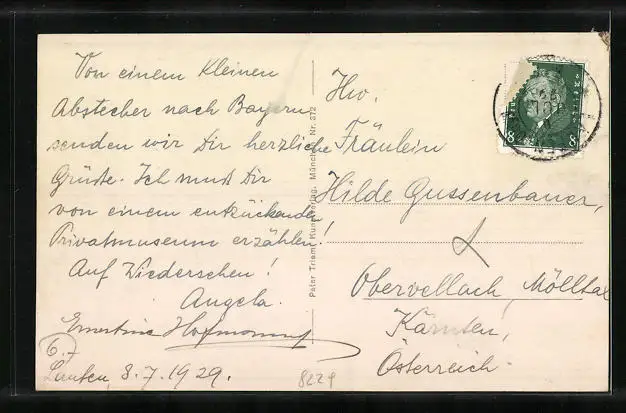 Von einem kleinen
Abstecher nach Bayern
senden wir Dir herzliche
Grüße. Ich muß Dir
von einem entzückenden
Privatmuseum erzählen!
Auf Wiedersehen!
Angela.
Ernestine
Laufen, 8.7.1929.
8229
Peter Triem, Kunstverlag, München Nr. 372
Hw.
Fräulein
Hilde Gussenbauer,
Obervellach, Mölltal
Kärnten,
Österreich.
8 8